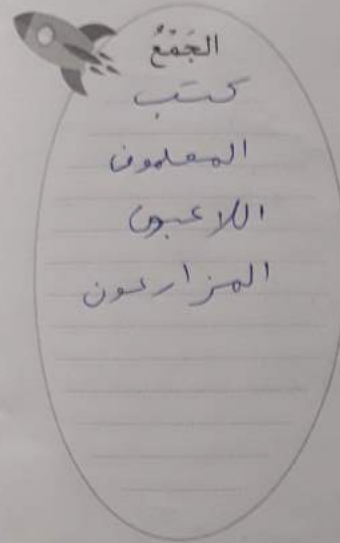 الجَمْعُ
كتب
المعلمون
اللاعبون
المزارعون